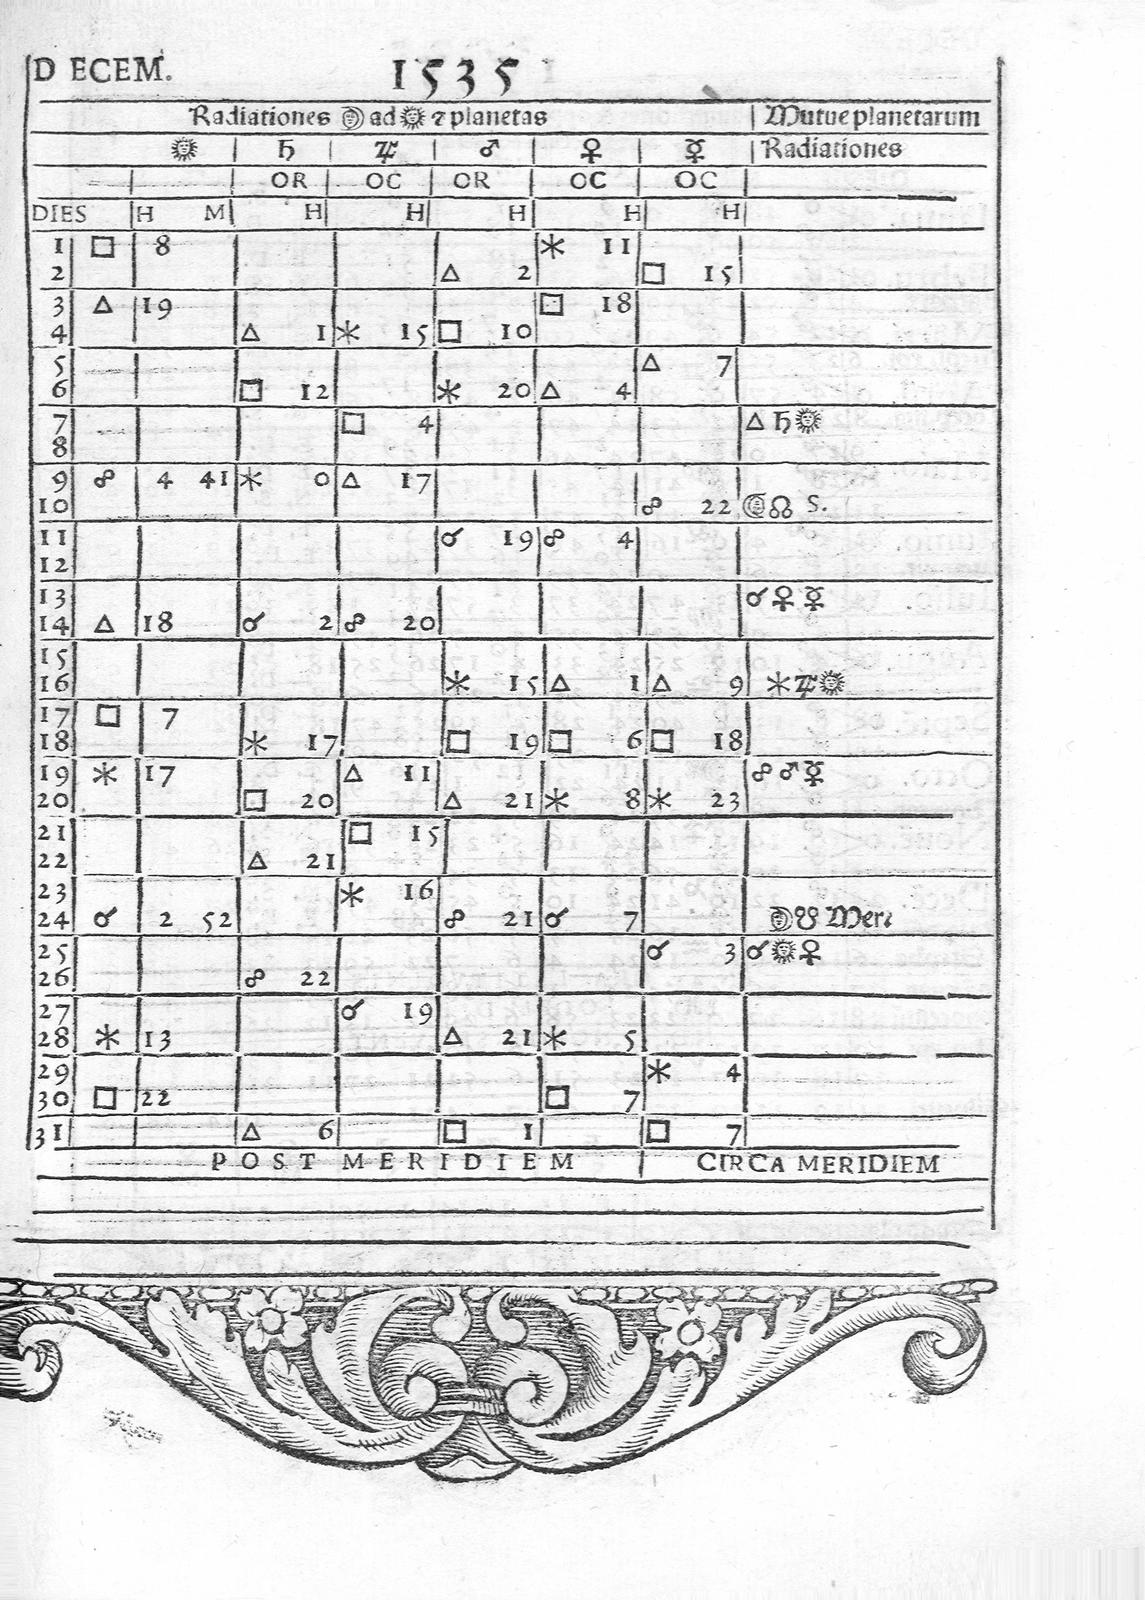 DECEM. 1535
Radiationes ☽ ad ☉ ⁊ planetas | Mutue planetarum
☉ | ♄ | ♃ | ♂ | ♀ | ☿ | Radiationes
OR | OC | OR | OC | OC
DIES | H M | H | H | H | H | H
1 □ 8 ⚹ 11
2 △ 2 □ 15
3 △ 19 □ 18
4 △ 1 ⚹ 15 □ 10
5 △ 7
6 □ 12 ⚹ 20 △ 4
7 □ 4 △ ♄ ☉
8
9 ☍ 4 41 ⚹ 0 △ 17
10 ☍ 22 ☽ ☊ S.
11 ☌ 19 ☍ 4
12
13 ☌ ♀ ☿
14 △ 18 ☌ 2 ☍ 20
15
16 ⚹ 15 △ 1 △ 9 ⚹ ♃ ☉
17 □ 7
18 ⚹ 17 □ 19 □ 6 □ 18
19 ⚹ 17 △ 11 ☍ ♂ ☿
20 □ 20 △ 21 ⚹ 8 ⚹ 23
21 □ 15
22 △ 21
23 ⚹ 16
24 ☌ 2 52 ☍ 21 ☌ 7 ☽ ☋ Meri
25 ☌ 3 ☌ ☉ ♀
26 ☍ 22
27 ☌ 19
28 ⚹ 13 △ 21 ⚹ 5
29 ⚹ 4
30 □ 22 □ 7
31 △ 6 □ 1 □ 7
POST MERIDIEM | CIRCA MERIDIEM